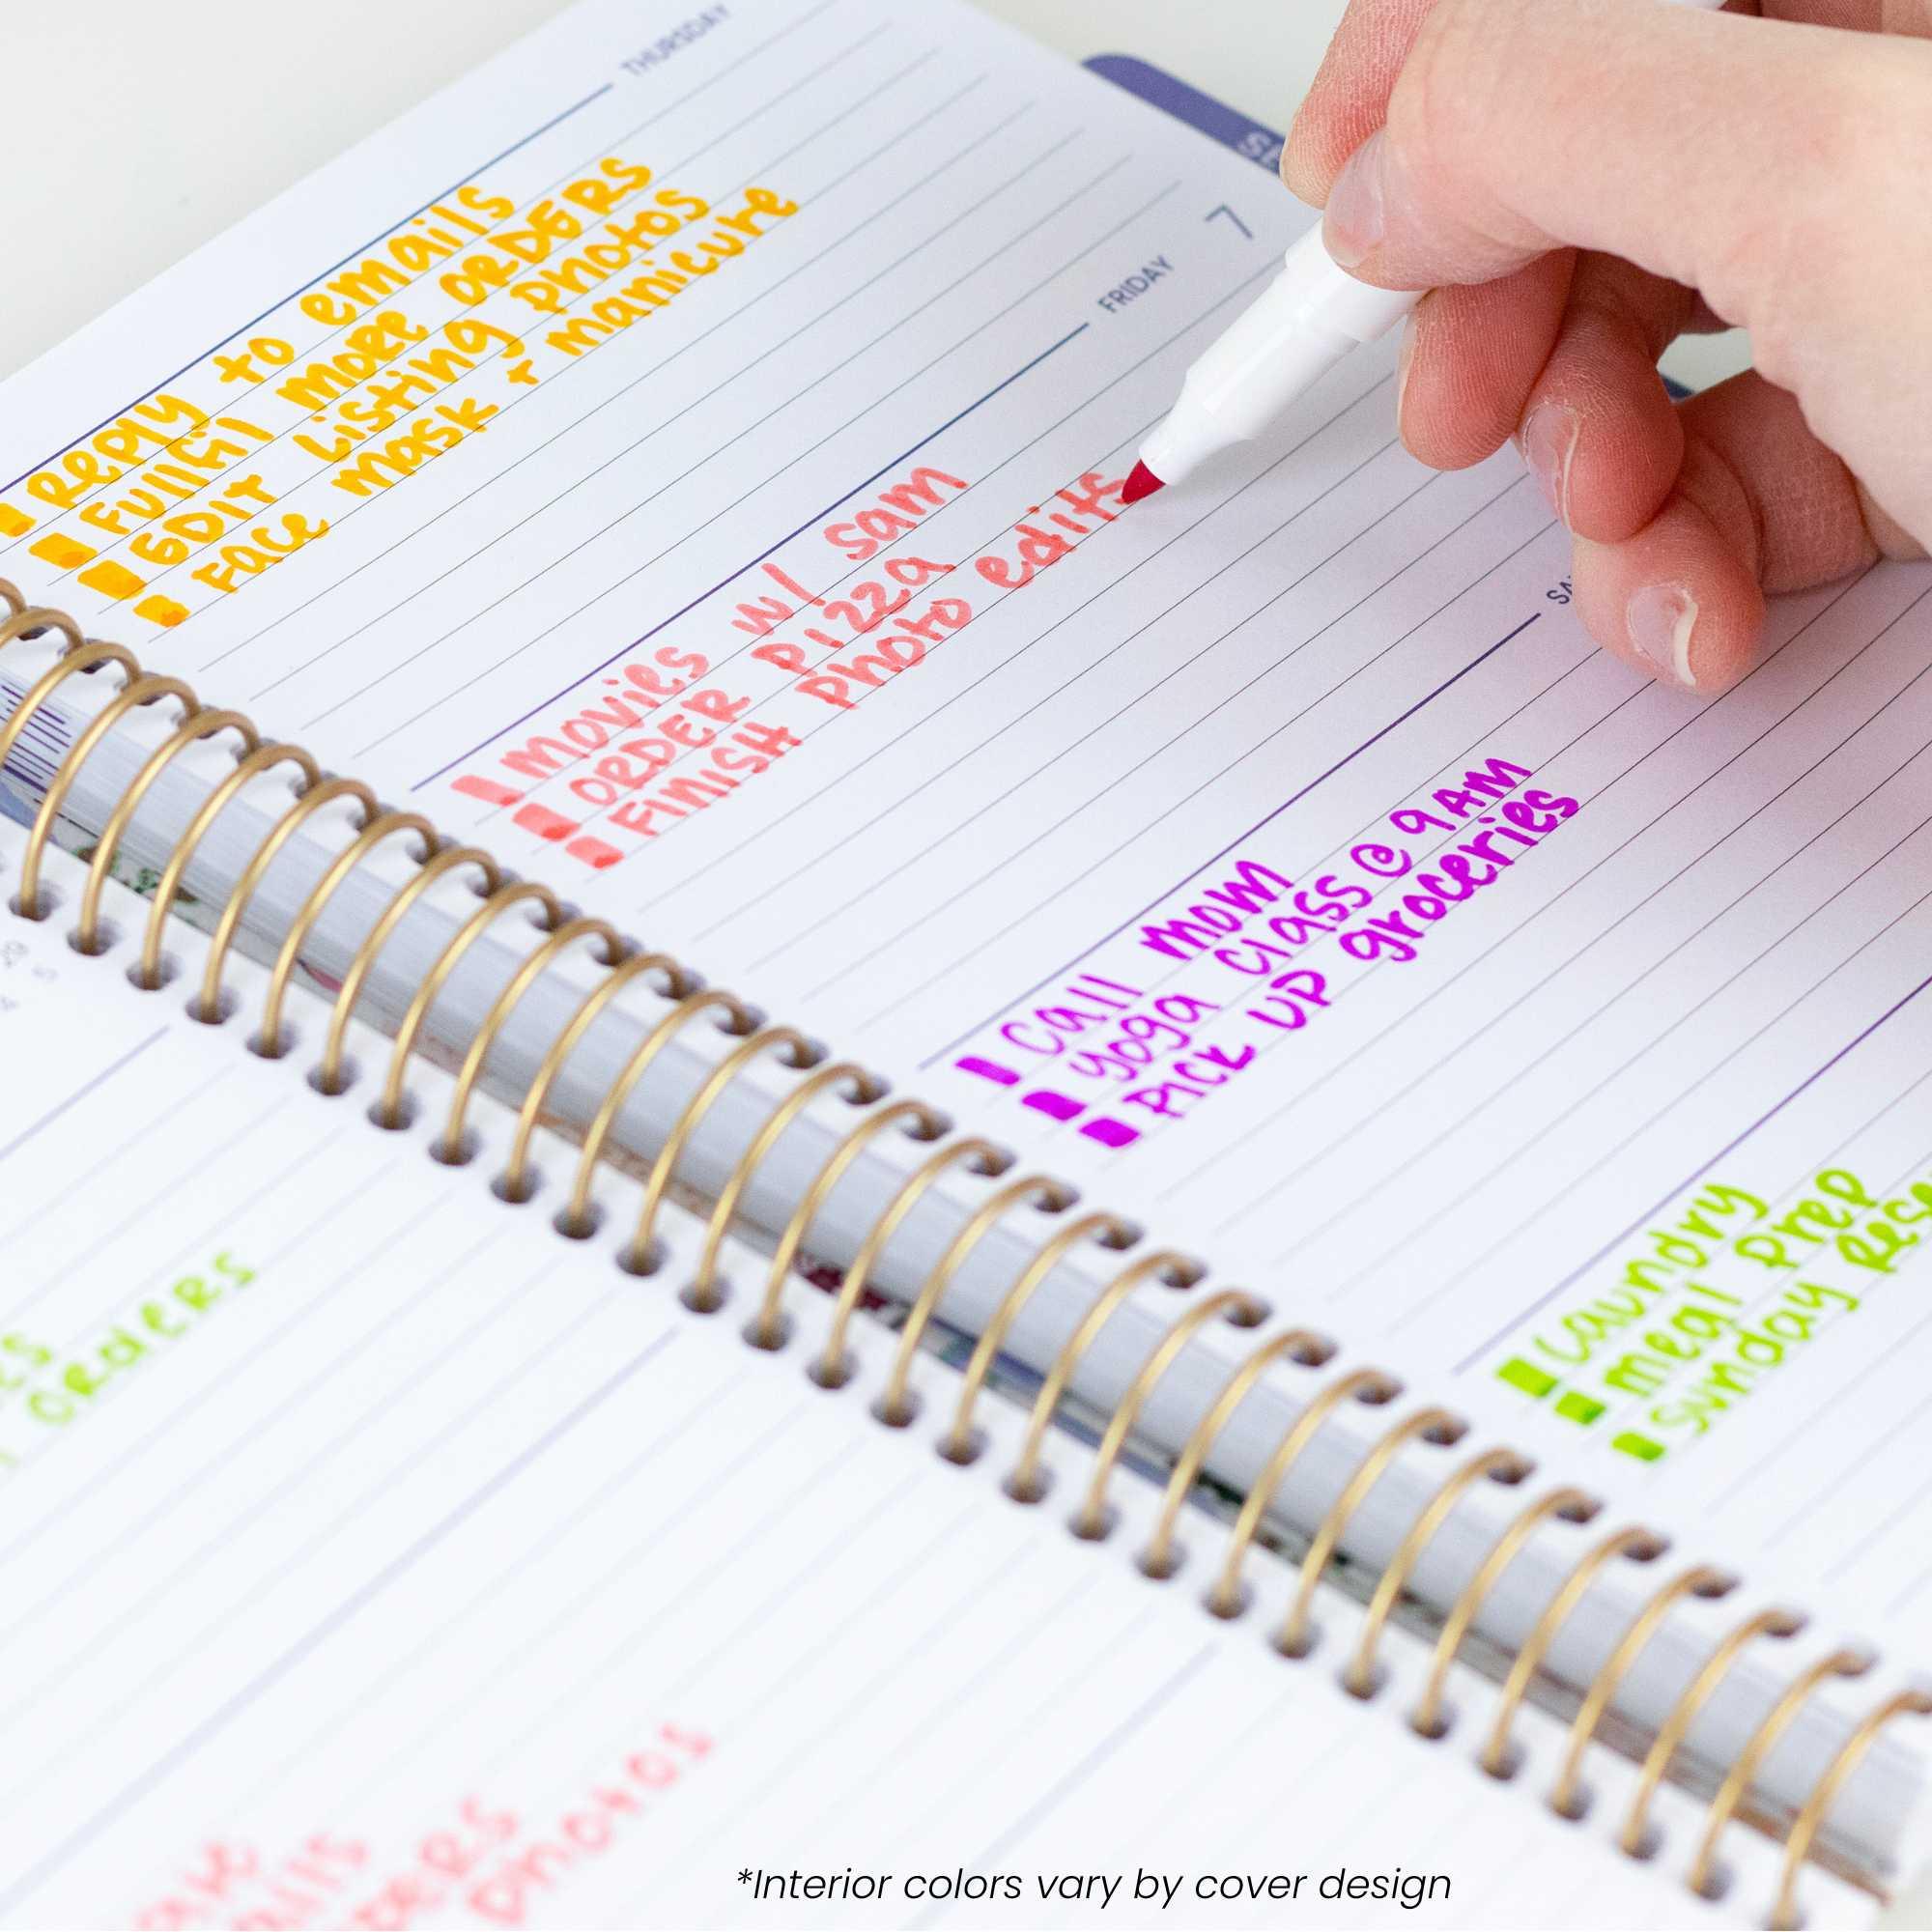 THURSDAY
Reply to emails
Fullfil more ORDERS
EDIT Listing photos
Face mask + manicure
FRIDAY 7
movies w/ sam
ORDER pizza
FINISH photo edits
call mom
yoga class @ 9 AM
PICK UP groceries
Laundry
meal prep
sunday
orders
photos
*Interior colors vary by cover design